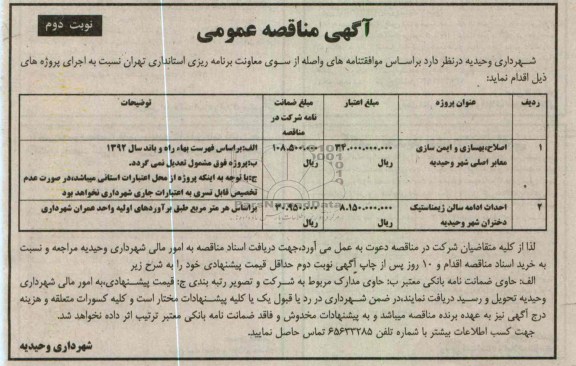 نوبت دوم
آگهی مناقصه عمومی
شهرداری وحیدیه درنظر دارد براساس موافقتنامه های واصله از سوی معاونت برنامه ریزی استانداری تهران نسبت به اجرای پروژه های
ذیل اقدام نماید:
ردیف عنوان پروژه مبلغ اعتبار مبلغ ضمانت نامه شرکت در مناقصه توضیحات
۱ اصلاح،بهسازی و ایمن سازی معابر اصلی شهر وحیدیه ۳۴.۰۰۰.۰۰۰.۰۰۰ ریال ۱۰۸.۵۰۰.۰۰۰ ریال الف:براساس فهرست بهاء راه و باند سال ۱۳۹۲
ب:پروژه فوق مشمول تعدیل نمی گردد.
ج:با توجه به اینکه پروژه از محل اعتبارات استانی میباشد،در صورت عدم
تخصیص قابل تسری به اعتبارات جاری شهرداری نخواهد بود
۲ احداث ادامه سالن ژیمناستیک دختران شهر وحیدیه ۸.۱۵۰.۰۰۰.۰۰۰ ریال ۳۰.۹۵۰.۰۰۰ ریال براساس هر متر مربع طبق برآوردهای اولیه واحد عمران شهرداری
لذا از کلیه متقاضیان شرکت در مناقصه دعوت به عمل می آورد،جهت دریافت اسناد مناقصه به امور مالی شهرداری وحیدیه مراجعه و نسبت
به خرید اسناد مناقصه اقدام و ۱۰ روز پس از چاپ آگهی نوبت دوم حداقل قیمت پیشنهادی خود را به شرح زیر
الف: حاوی ضمانت نامه بانکی معتبر ب: حاوی مدارک مربوط به شرکت و تصویر رتبه بندی ج: قیمت پیشنهادی،به امور مالی شهرداری
وحیدیه تحویل و رسید دریافت نمایند،در ضمن شهرداری در رد یا قبول یک یا کلیه پیشنهادات مختار است و کلیه کسورات متعلقه و هزینه
درج آگهی نیز به عهده برنده مناقصه میباشد و به پیشنهادات مخدوش و فاقد ضمانت نامه بانکی معتبر ترتیب اثر داده نخواهد شد.
جهت کسب اطلاعات بیشتر با شماره تلفن ۶۵۶۳۳۲۸۵ تماس حاصل نمایید.
شهرداری وحیدیه